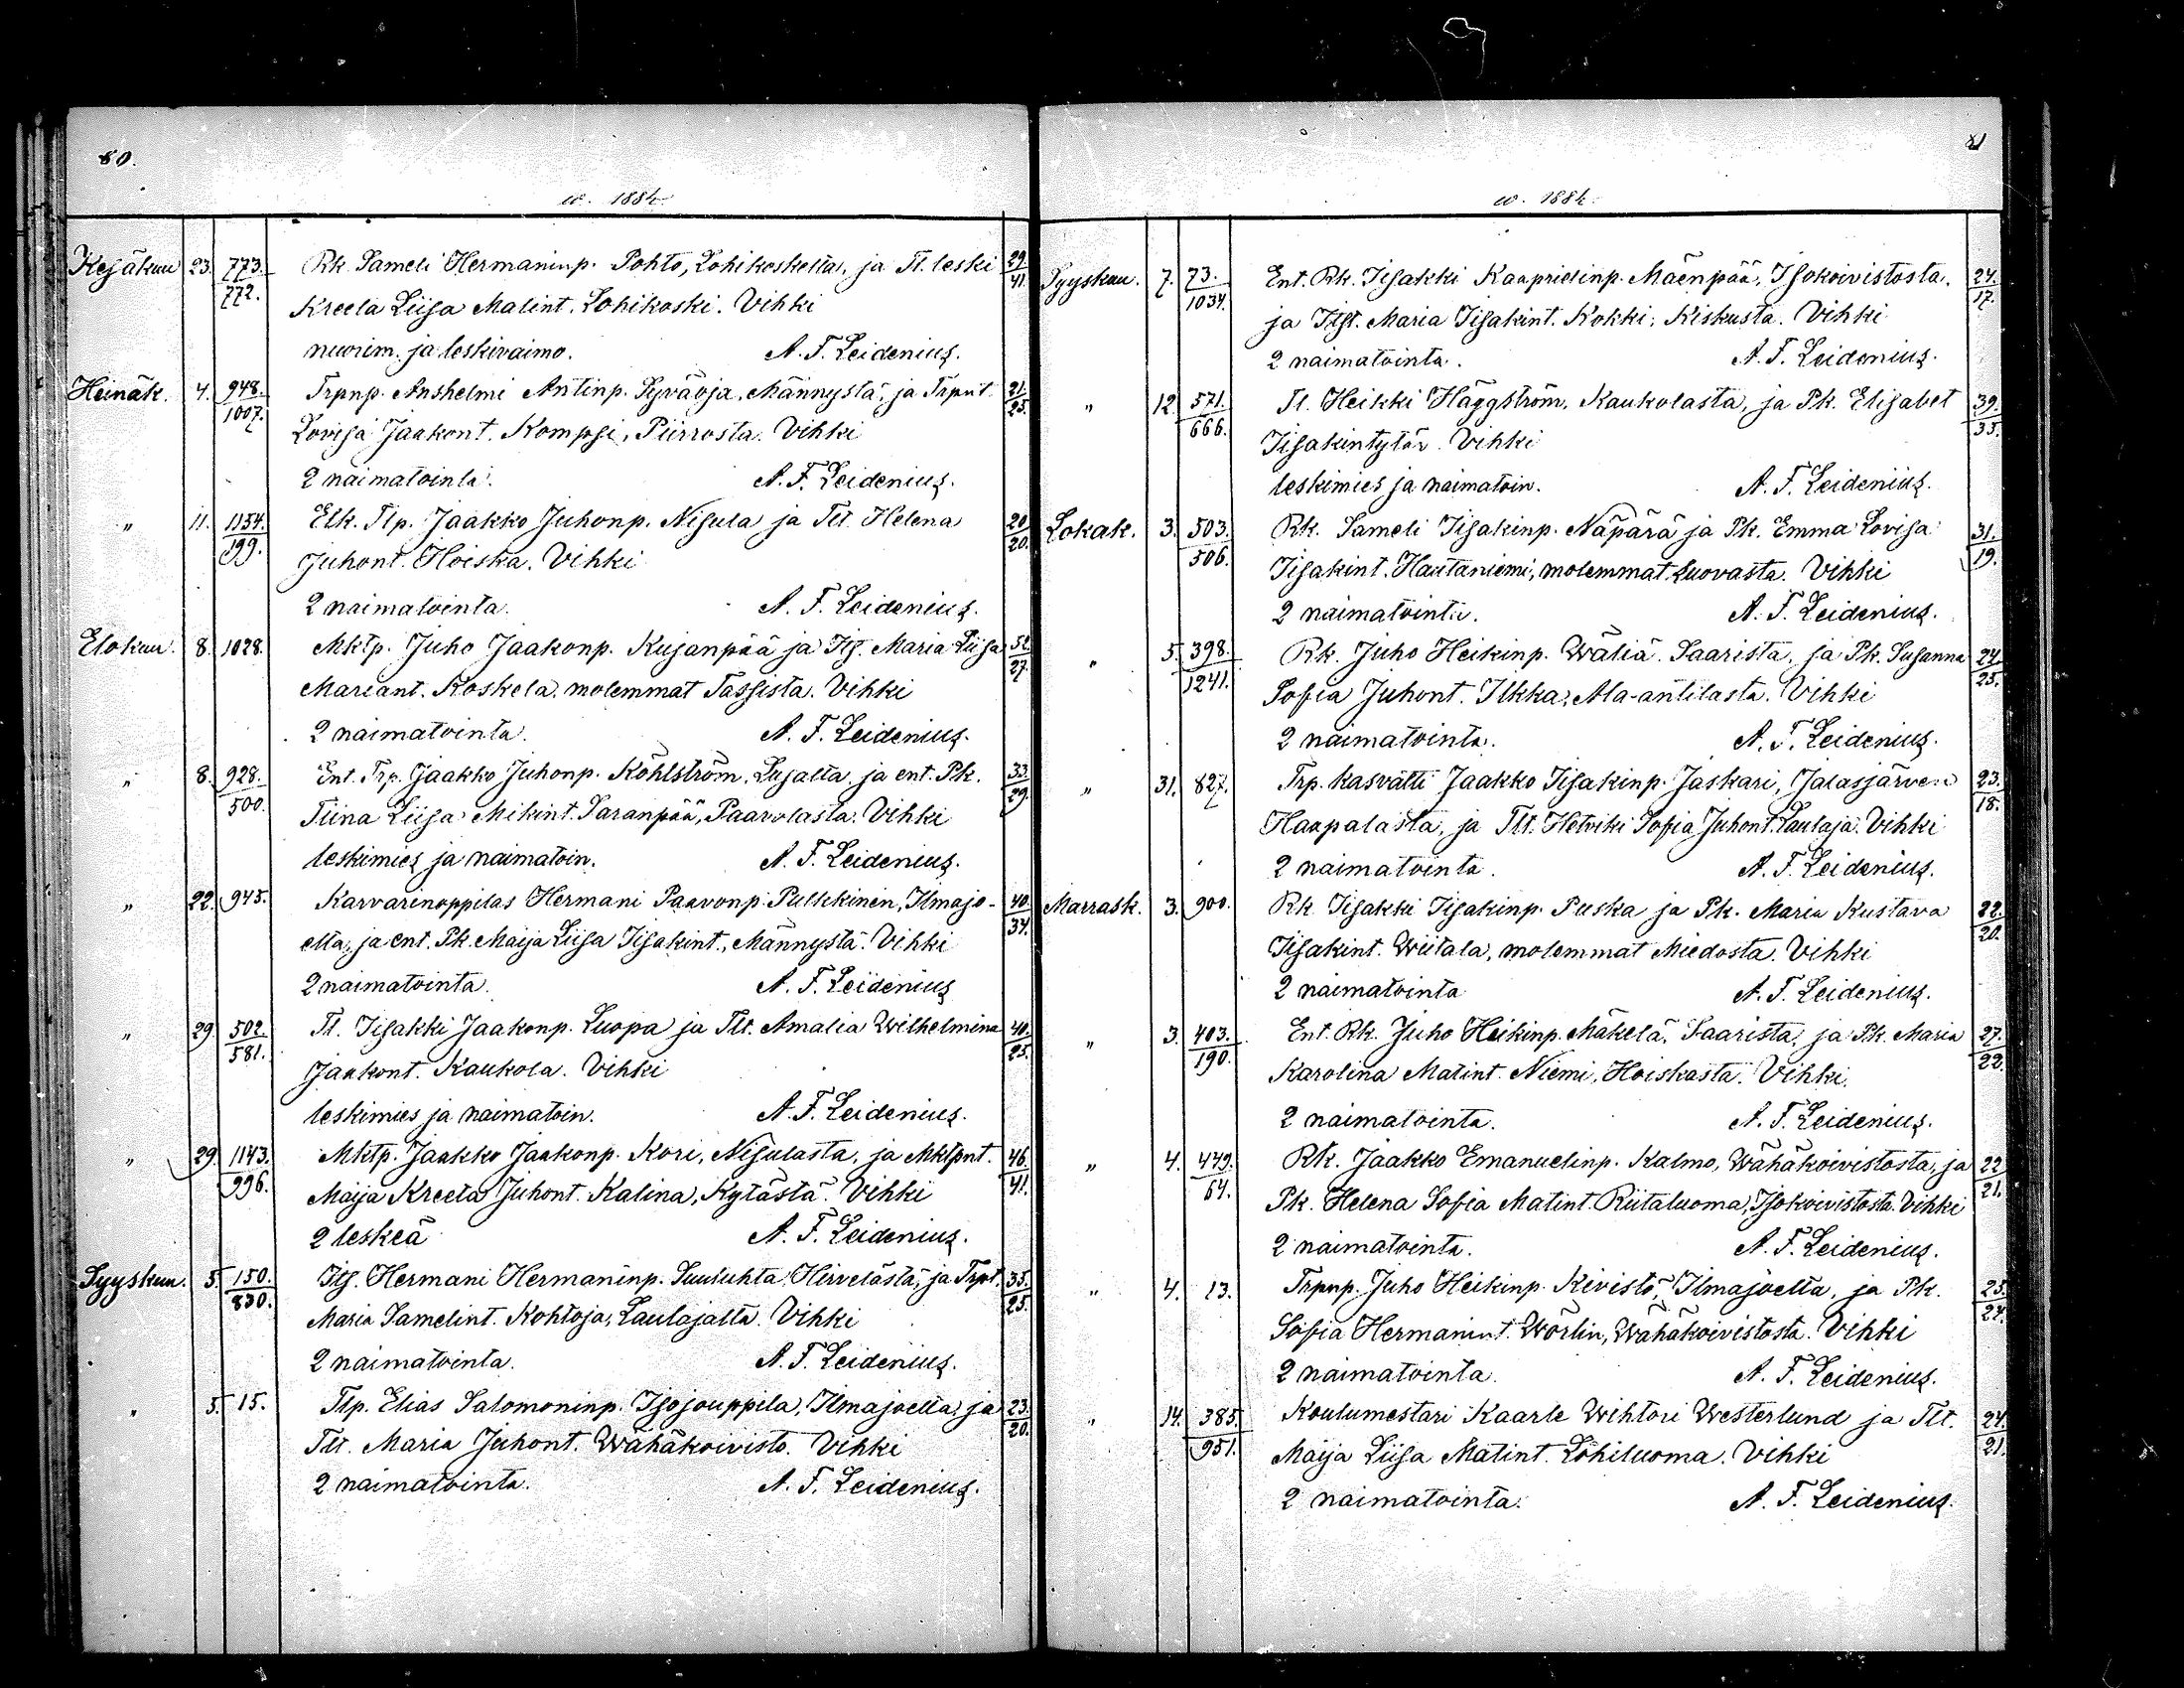 80.
w. 1884.
Kesäkuu 23. 773. Rk. Sameli Hermaninp. Pohto, Lohikoskelta, ja Tl. leski 29.
772. Kreeta Liisa Matint. Lohikoski. Vihki 41.
nuorim. ja leskivaimo. A. F. Leidenius.
Heinäk. 4. 948. Trpnp. Anshelmi Antinp. Syväoja, Männystä, ja Trpnt. 21.
1007. Lovisa Jaakont. Kompsi, Piirrosta. Vihki 25.
2 naimatointa. A. F. Leidenius.
" 11. 1154. Elk. Tlp. Jaakko Juhonp. Nisula ja Tlt. Helena 20.
199. Juhont. Hoiska. Vihki 20.
2 naimatointa. A. F. Leidenius.
Elokuu. 8. 1028. Mktp. Juho Jaakonp. Kujanpää ja Its. Maria Liisa 32.
Mariant. Koskela, molemmat Tassista. Vihki 27.
2 naimatointa. A. F. Leidenius.
" 8. 928. Ent. Trp. Jaakko Juhonp. Köhlström, Lusalta, ja ent. Pk. 33.
500. Tiina Liisa Mikint. Saranpää, Paavolasta. Vihki 29.
leskimies ja naimatoin. A. F. Leidenius.
" 22. 945. Karvarinoppilas Hermani Paavonp. Pulkkinen, Ilmajo- 40.
elta, ja ent. Pk. Maija Liisa Iisakint., Männystä. Vihki 34.
2 naimatointa. A. F. Leidenius
" 29. 502. Tl. Iisakki Jaakonp. Luopa ja Tlt. Amalia Wilhelmina 40.
581. Jaakont. Kaukola. Vihki 25.
leskimies ja naimatoin. A. F. Leidenius.
" 29. 1143. Mktp. Jaakko Jaakonp. Kori, Nisulasta, ja Mktpnt. 46.
996. Maija Kreeta Juhont. Kalina, Kytästä. Vihki 41.
2 leskeä A. F. Leidenius.
Syyskuu. 5. 150. Its. Hermani Hermaninp. Luuluhta, Hirvelästä, ja Trpt. 35.
830. Maria Samelint. Kohtoja, Laulajalta. Vihki 25.
2 naimatointa. A. F. Leidenius.
" 5. 15. Tlp. Elias Salomoninp. Isojouppila, Ilmajoelta, ja 23.
Tlt. Maria Juhont. Wähäkoivisto. Vihki 20.
2 naimatointa. A. F. Leidenius.
81
w. 1884.
Syyskuu. 7. 73. Ent. Rk. Iisakki Kaapridinp. Mäenpää, Isokoivistosta, 24.
1034. ja Itst. Maria Iisakint. Kokki, Kiskusta. Vihki 17.
2 naimatointa. A. F. Leidenius.
" 12. 571. Tl. Heikki Häggström, Kaukolasta, ja Pk. Elisabet 39.
666. Iisakintytär. Vihki 35.
leskimies ja naimatoin. A. F. Leidenius.
Lokak. 3. 503. Rk. Sameli Iisakinp. Näpärä ja Pk. Emma Lovisa 31.
506. Iisakint. Hautaniemi, molemmat Luovasta. Vihki 19.
2 naimatointa. A. F. Leidenius.
" 5. 398. Rk. Juho Heikinp. Wäliä, Saarista, ja Pk. Susanna 24.
1241. Sofia Juhont. Ilkka, Ala-antilasta. Vihki 25.
2 naimatointa. A. F. Leidenius.
" 31. 827. Trp. kasvatti Jaakko Iisakinp. Jaskari, Jalasjärven 23.
Haapalasta, ja Tlt. Hetviki Sofia Juhont. Laulaja. Vihki 18.
2 naimatointa. A. F. Leidenius.
Marrask. 3. 900. Rk. Iisakki Iisakinp. Puska ja Pk. Maria Kustava 22.
Iisakint. Wiitala, molemmat Miedosta. Vihki 20.
2 naimatointa A. F. Leidenius.
" 3. 403. Ent. Rk. Juho Heikinp. Mäkelä, Saarista, ja Pk. Maria 27.
190. Karolina Matint. Niemi, Hoiskasta. Vihki. 22.
2 naimatointa. A. F. Leidenius.
" 4. 479. Rk. Jaakko Emanuelinp. Kalmo, Wähäkoivistosta, ja 22
64. Pk. Helena Sofia Matint. Riitaluoma, Isokoivistosta. Vihki 21.
2 naimatointa. A. F. Leidenius.
" 4. 13. Trpnp. Juho Heikinp. Kivistö, Ilmajoelta, ja Pk. 25.
Sofia Hermanint. Wörlin, Wähäkoivistosta. Vihki 24.
2 naimatointa. A. F. Leidenius.
" 14. 385. Koulumestari Kaarle Wihtori Westerlund ja Tlt. 24.
951. Maija Liisa Matint. Lohiluoma. Vihki 21.
2 naimatointa. A. F. Leidenius.